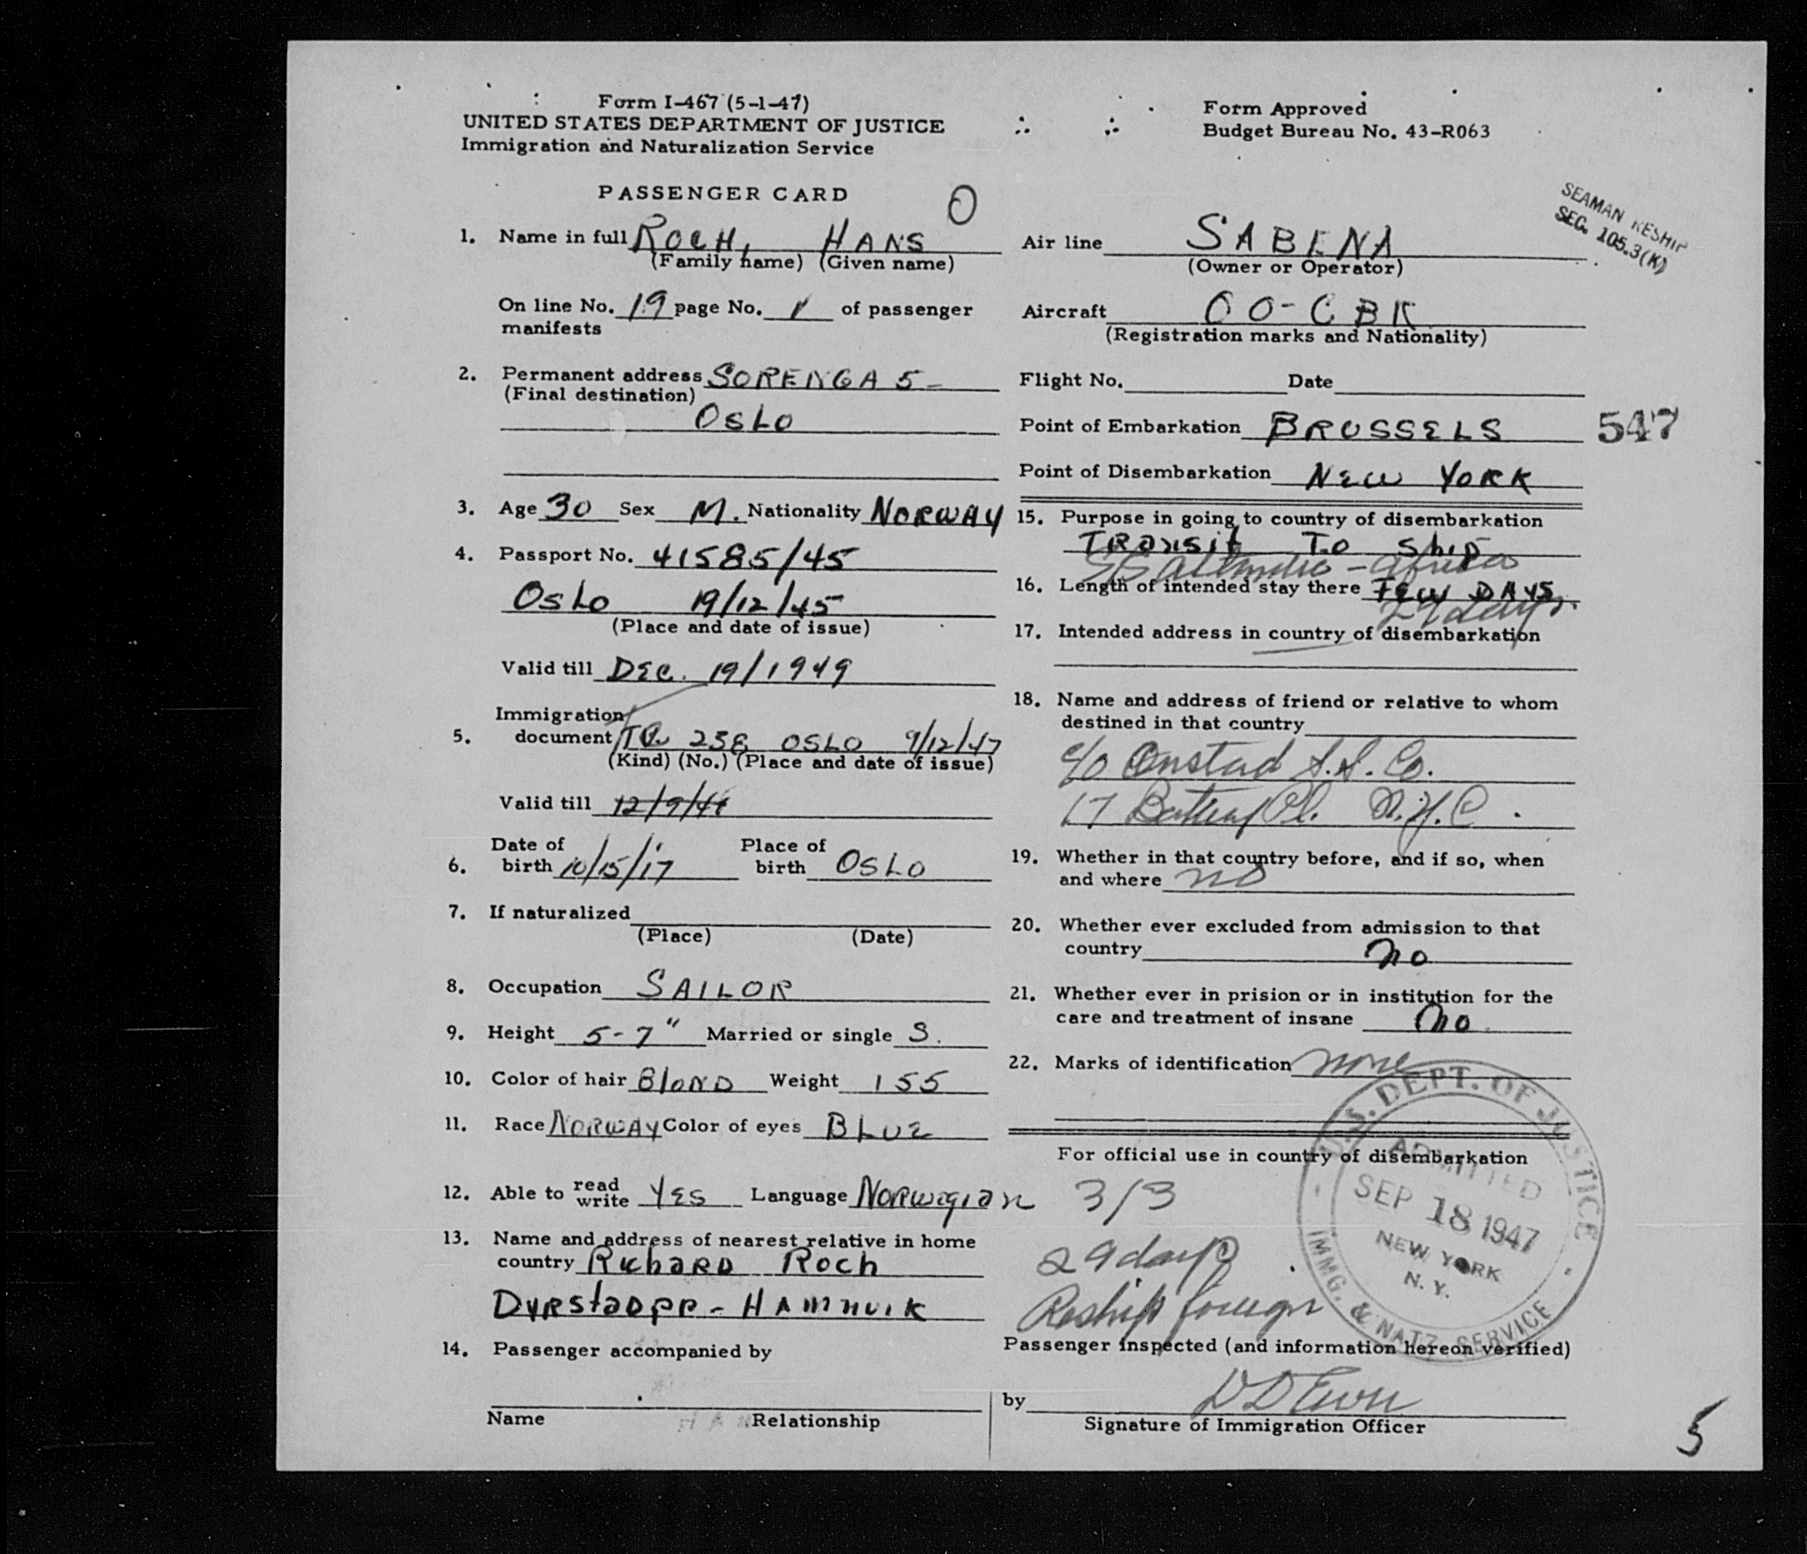 Form I-467 (5-1-47)
UNITED STATES DEPARTMENT OF JUSTICE
Immigration and Naturalization Service
Form Approved
Budget Bureau No. 43-R063
PASSENGER CARD
O
SEAMAN RESHIP
SEC. 105.3(K)
1. Name in full ROCH, HANS
(Family name) (Given name)
On line No. 19 page No. 1 of passenger
manifests
2. Permanent address SORENGA 5-
(Final destination)
OSLO
3. Age 30 Sex M. Nationality NORWAY
4. Passport No. 41585/45
OSLO 19/12/45
(Place and date of issue)
Valid till DEC. 19/1949
Immigration
5. document 238 OSLO 9/12/47
(Kind) (No.) (Place and date of issue)
Valid till 12/9/47
6. Date of birth 10/15/17 Place of birth OSLO
7. If naturalized
(Place) (Date)
8. Occupation SAILOR
9. Height 5-7" Married or single S.
10. Color of hair BLOND Weight 155
11. Race NORWAY Color of eyes BLUE
12. Able to read write YES Language NORWEGIAN
13. Name and address of nearest relative in home
country RICHARD ROCH
14. Passenger accompanied by
Name Relationship
Air line SABENA
(Owner or Operator)
Aircraft OO-CBK
(Registration marks and Nationality)
Flight No. Date
Point of Embarkation BRUSSELS
547
Point of Disembarkation NEW YORK
15. Purpose in going to country of disembarkation
TRANSIT TO SHIP
SS Atlantic - Africa
16. Length of intended stay there FEW DAYS
29 days
17. Intended address in country of disembarkation
18. Name and address of friend or relative to whom
destined in that country
c/o Onstad S.S. Co.
17 Battery Pl. N.Y.C.
19. Whether in that country before, and if so, when
and where no
20. Whether ever excluded from admission to that
country no
21. Whether ever in prision or in institution for the
care and treatment of insane no
22. Marks of identification none
For official use in country of disembarkation
3/3
29 days
Reship foreign
U.S. DEPT. OF JUSTICE
ADMITTED
SEP 18 1947
NEW YORK
N. Y.
IMMG. & NATZ. SERVICE
Passenger inspected (and information hereon verified)
by
Signature of Immigration Officer
5